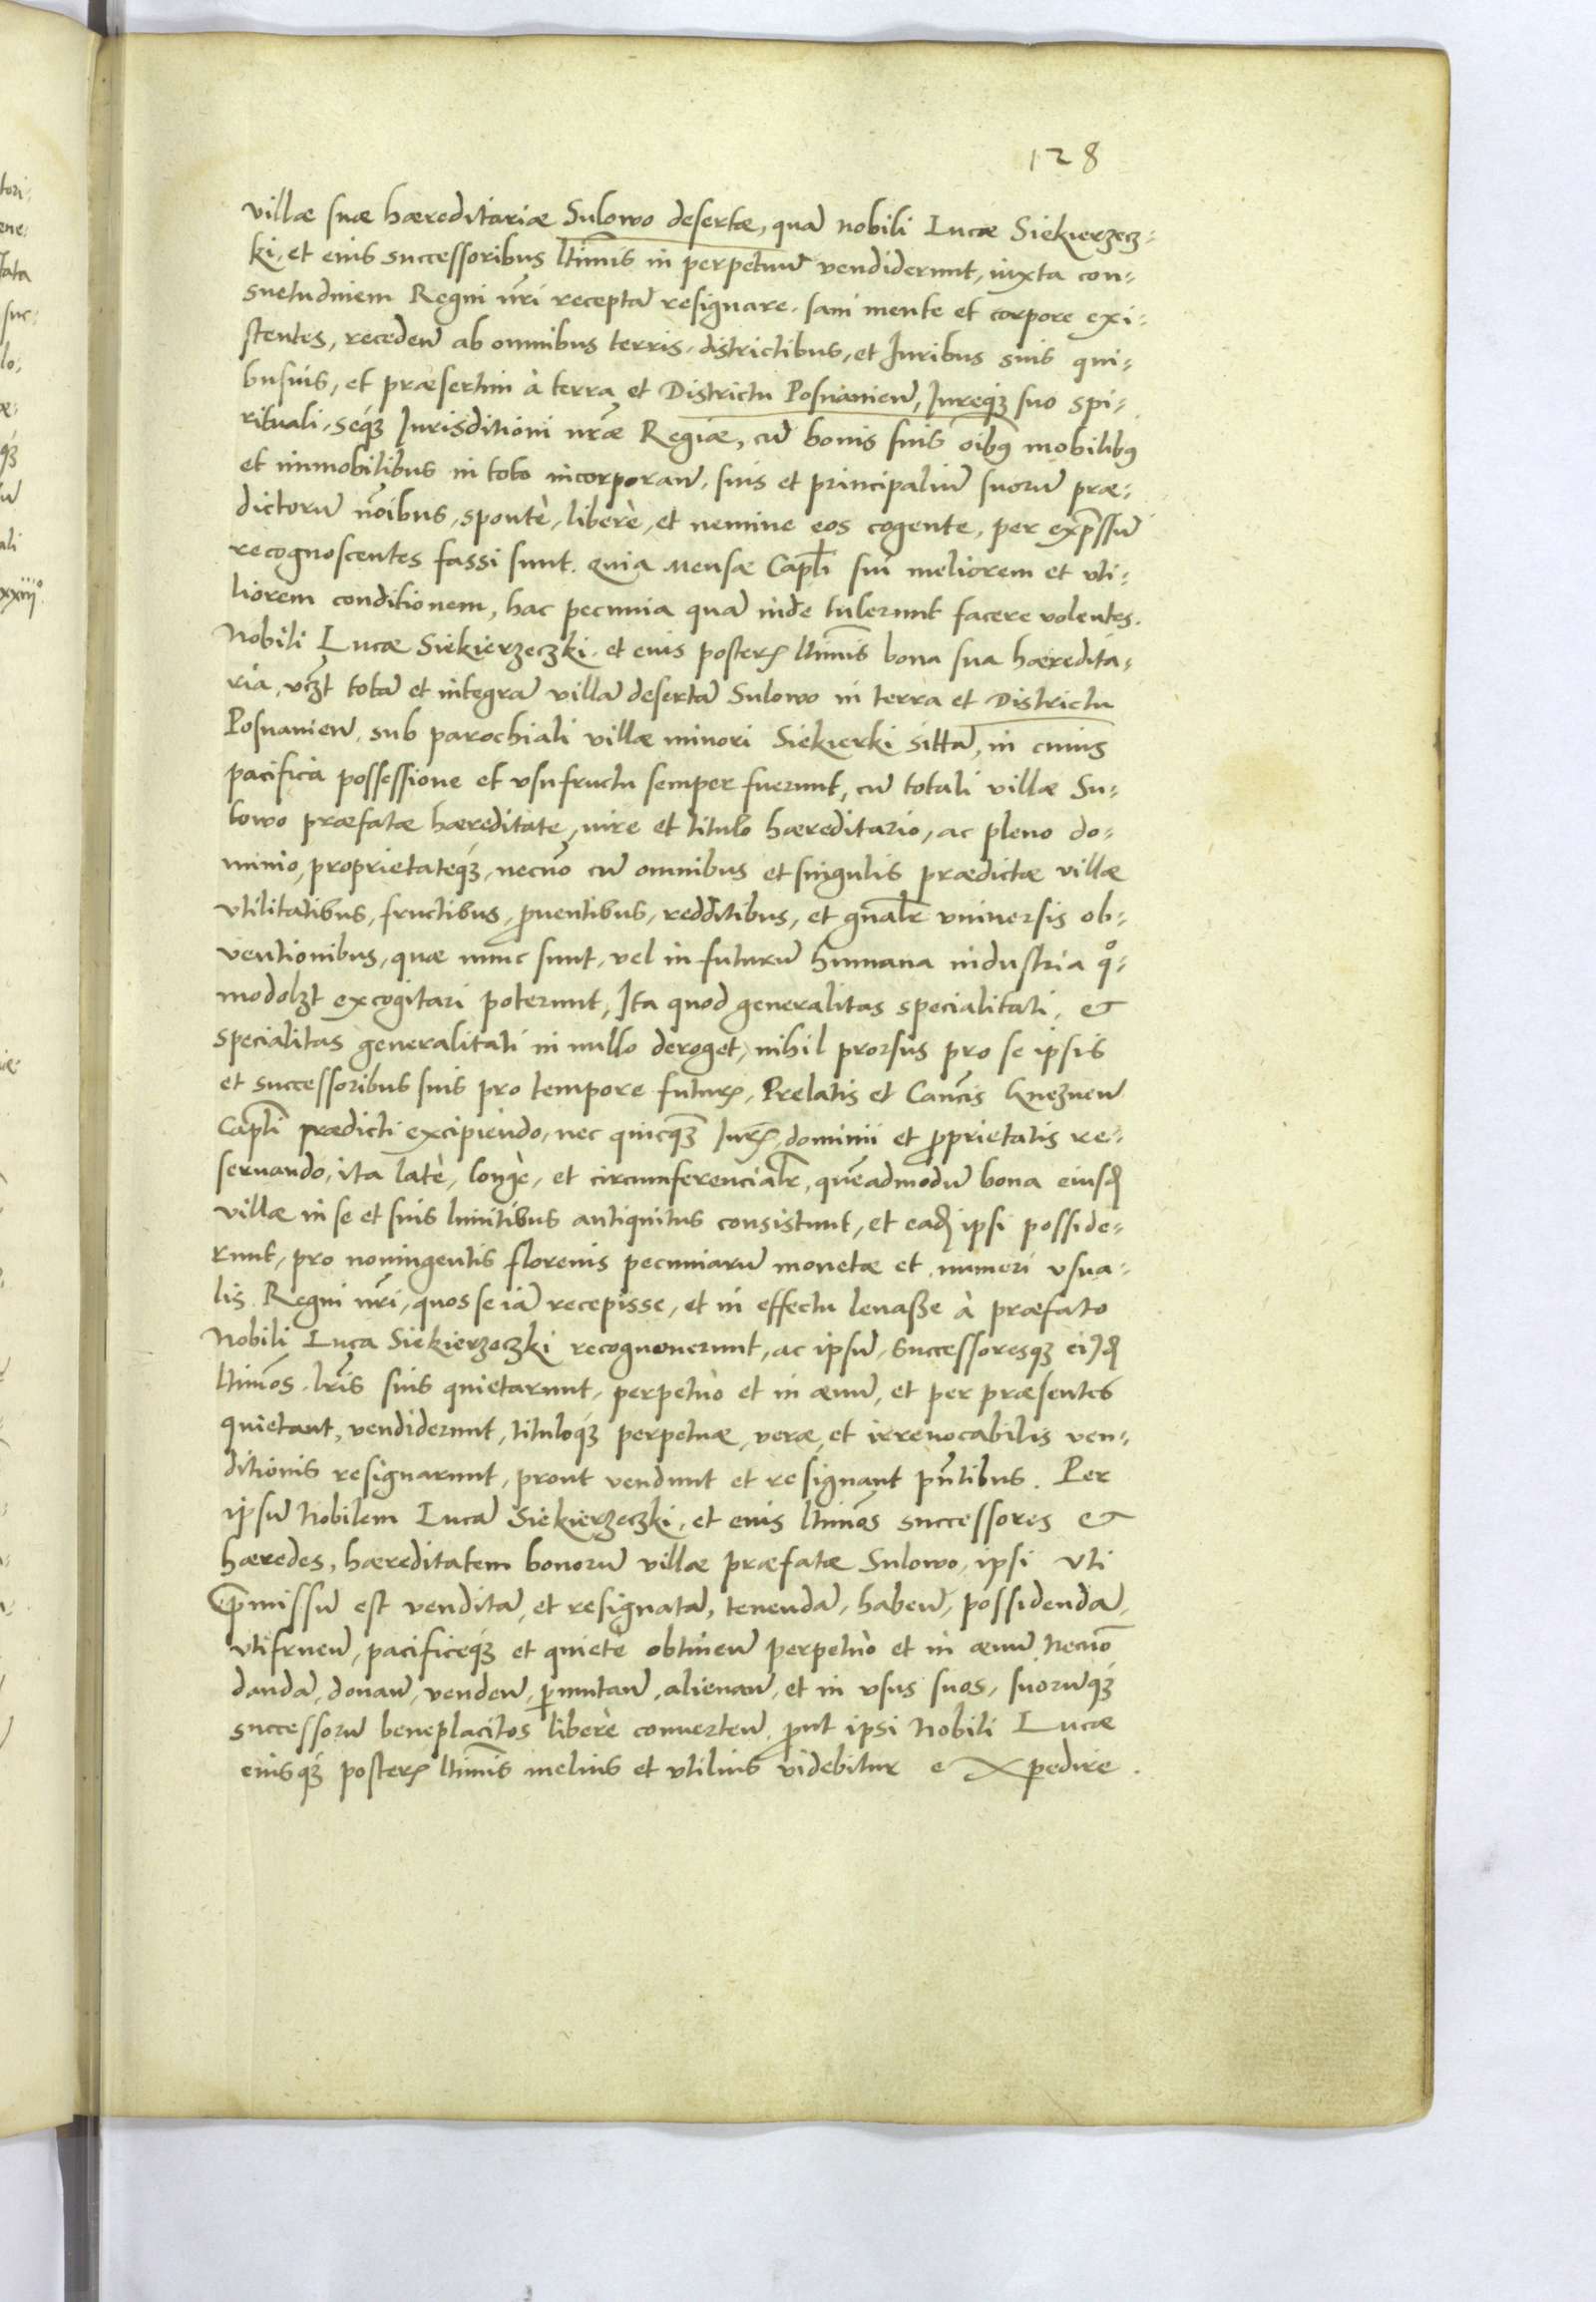 128
villæ suæ hæreditariæ Sulowo desertæ, quā nobili Lucæ Siekierzecz-
ki, et eius successoribus ltimis in perpetuū vendiderunt, iuxta con-
suetudinem Regni nri receptā resignare. sani mente et corpore exi-
stentes, receden̄ ab omnibus terris, districtibus, et Iuribus suis qui-
busuis, et præsertim à terra et Districtu Posnanien̄, Iureq3 suo spi-
rituali, seq3 Iurisditioni nræ Regiæ, cū bonis suis oib9 mobilib9
et immobilibus in toto incorporan̄. suis et principaliū suorū præ-
dictorū noibus, spontè, liberè, et nemine eos cogente, per expssū
recognoscentes fassi sunt. Quia mensæ Capli sui meliorem et vti-
liorem conditionem, hac pecunia quā inde tulerunt facere volentes.
Nobili Lucæ Siekierzeczki, et eius posteris ltimis bona sua hæredita-
ria, vczt totā et integrā villā desertā Sulowo in terra et Districtu
Posnanien̄ sub parochiali villæ minori Siekierki sittā, in cuius
pacifica possessione et vsufructu semper fuerunt, cū totali villæ Su-
lowo præfatæ hæreditate, iure et titulo hæreditario, ac pleno do-
minio, proprietateq3, necnō cū omnibus et singulis prædictæ villæ
vtilitatibus, fructibus, puentibus, redditibus, et gnalr vniuersis ob-
uentionibus, quæ nunc sunt, vel in futurū humana industria qº-
modolzt excogitari poterunt, Ita quod generalitas specialitati, &
specialitas generalitati in nullo deroget, nihil prorsus pro se ipsis
et successoribus suis pro tempore futuris, Prelatis et Cancis Gneznen̄
Capli prædicti excipiendo, nec quicq3 Iuris, dominii et pprietatis re-
seruando, ita latè, longè, et circumferencialr, quēadmodū bona eiusd
villæ in se et suis limitibus antiquitus consistunt, et ead ipsi posside-
runt, pro noningentis florenis pecuniarū monetæ et numeri vsua-
lis Regni nri, quos se iā recepisse, et in effectu leuaße à præfato
Nobili Luca Siekierzeczki recognouerunt, ac ipsū, successoresq3 eiusd
ltimos, lris suis quietarunt, perpetuò et in æuū, et per præsentes
quietant, vendiderunt, tituloq3 perpetuæ, veræ, et irreuocabilis ven-
ditionis resignarunt, prout vendunt et resignant pntibus. Per
ipsū Nobilem Lucā Siekierzeczki, et eius ltimos successores &
hæredes, hæreditatem bonorū villæ præfatæ Sulowo, ipsi vti
pmissū est venditā, et resignatā, tenendā, haben̄, possidendā,
vtifruen̄, pacificeq3 et quietè obtinen̄ perpetuò et in æuū, Necnō
dandā, donan̄, venden̄, pmutan̄, alienan̄, et in vsus suos, suorūq3
successorū beneplacitos liberè conuerten̄, put ipsi Nobili Lucæ
eiusq3 posteris ltimis melius et vtilius videbitur expedire.